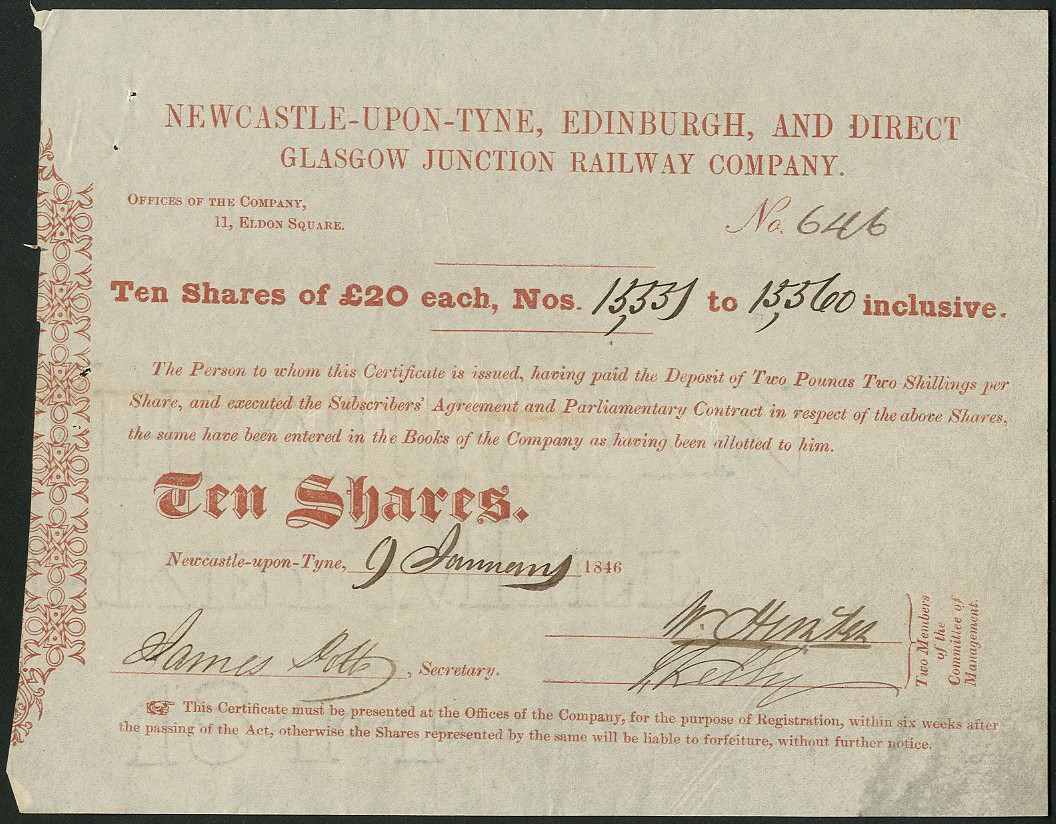 NEWCASTLE-UPON-TYNE, EDINBURGH, AND DIRECT
GLASGOW JUNCTION RAILWAY COMPANY.
OFFICES OF THE COMPANY,
11, ELDON SQUARE.
No. 646
Ten Shares of £20 each, Nos. 15,551 to 15,560 inclusive.
The Person to whom this Certificate is issued, having paid the Deposit of Two Pounas Two Shillings per
Share, and executed the Subscribers' Agreement and Parliamentary Contract in respect of the above Shares,
the same have been entered in the Books of the Company as having been allotted to him.
Ten Shares.
Newcastle-upon-Tyne, 9 January 1846
W. Hunter
James , Secretary.
Two Members
of the
Committee of
Management.
This Certificate must be presented at the Offices of the Company, for the purpose of Registration, within six weeks after
the passing of the Act, otherwise the Shares represented by the same will be liable to forfeiture, without further notice.